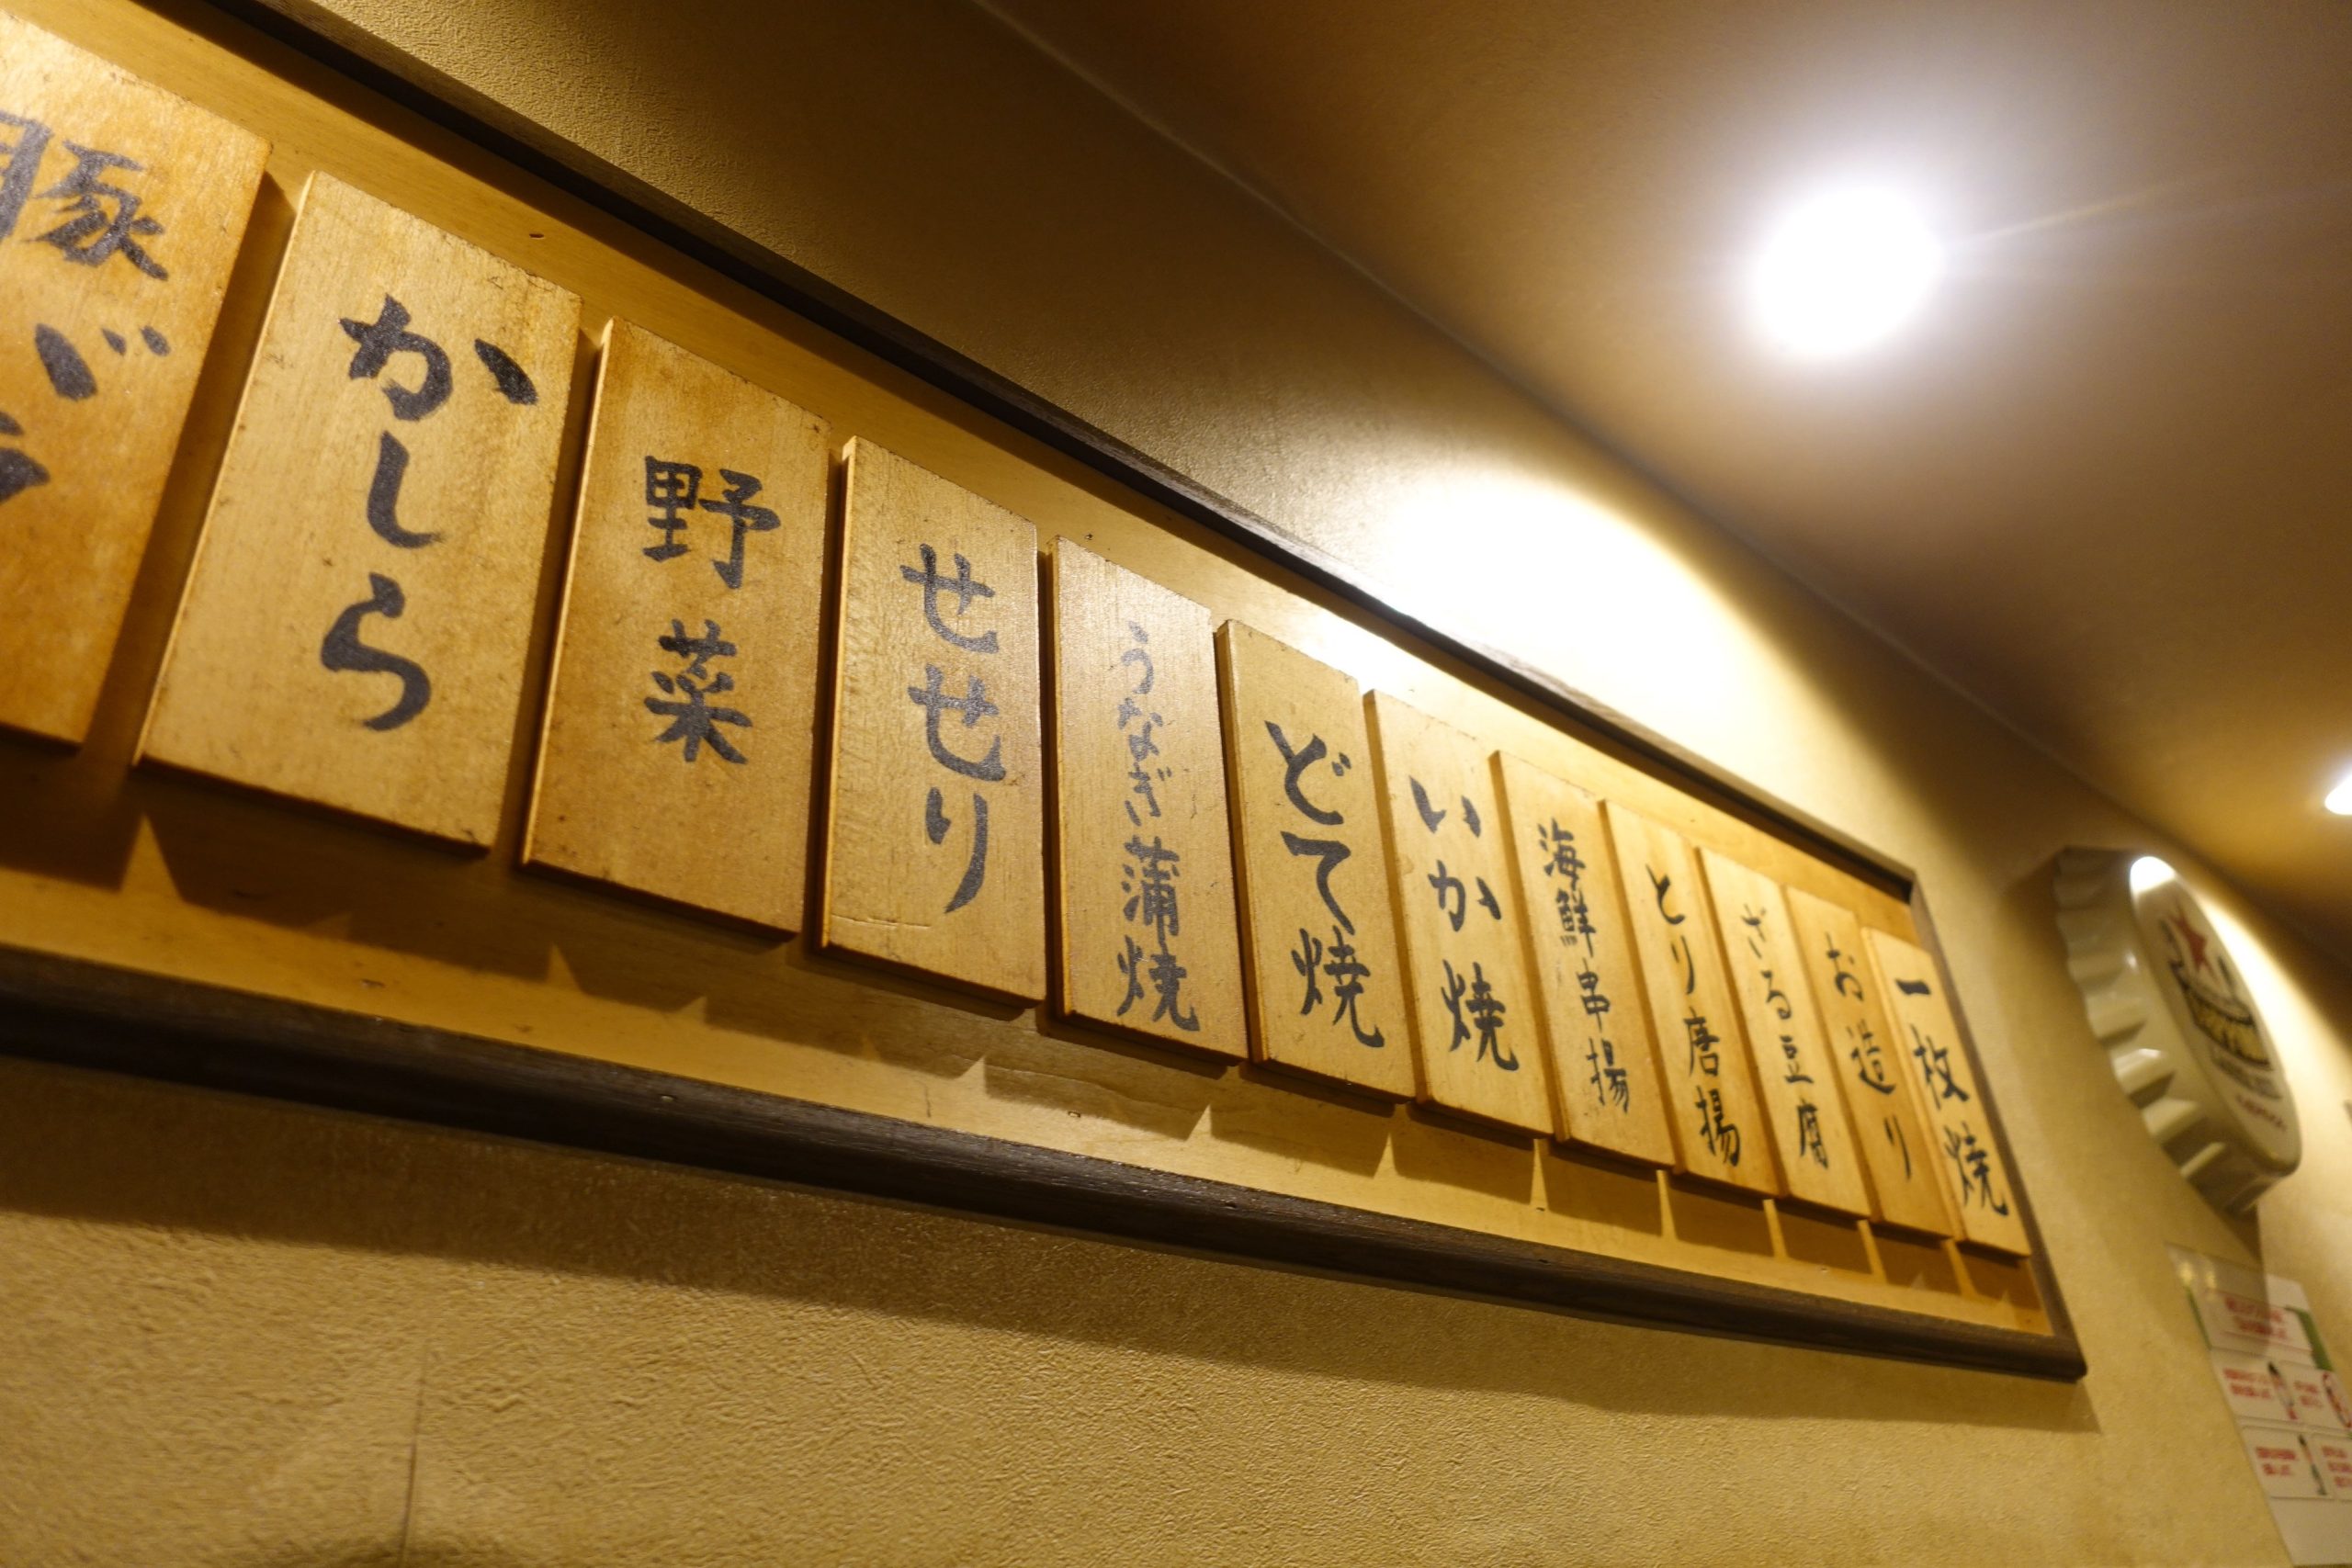 一枚焼
お造り
ざる豆腐
とり唐揚
海鮮串揚
いか焼
どて焼
うなぎ蒲焼
せせり
野菜
かしら
豚バラ